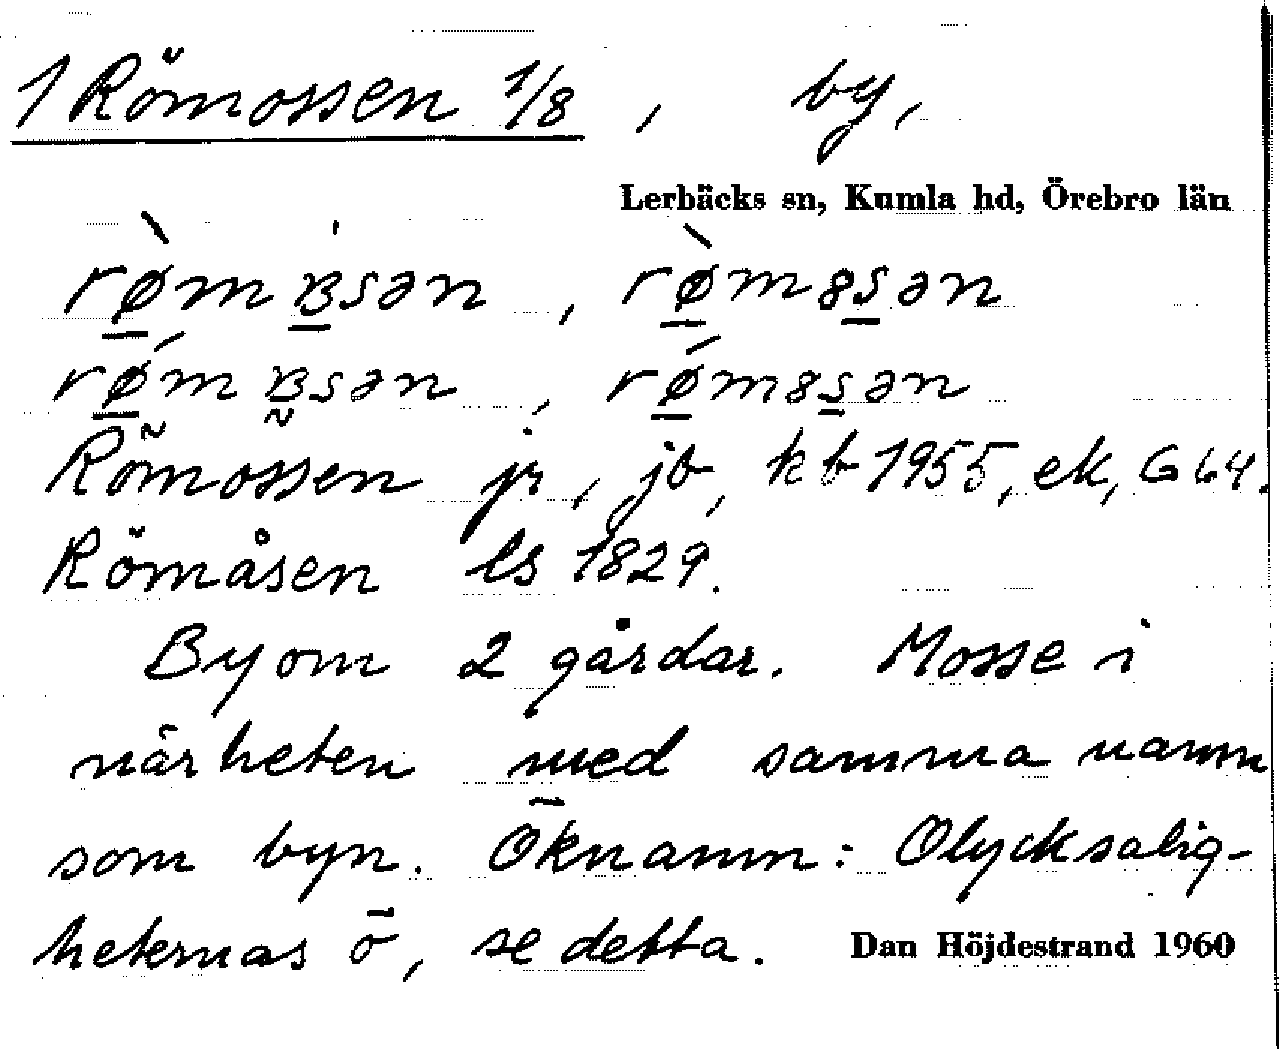 1 Römossen 1/8 , by,
Lerbäcks sn, Kumla hd, Örebro län
Römossen jr, jb, kb 1955, ek, G 64.
Römåsen ls 1829.
By om 2 gårdar. Mosse i
närheten med samma namn
som byn. Öknamn: Olycksalig-
heternas ö, se detta. Dan Höjdestrand 1960